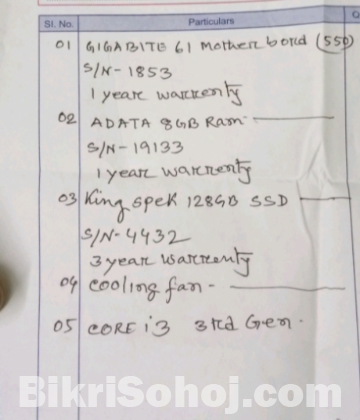 Sl. No.
Particulars
01 GIGABITE 61 Mother bord (550)
S/N-1853
1 year warrenty
02 ADATA 8GB Ram-
S/N-19133
1 year warrenty
03 King spek 128GB SSD
S/N-4432
3 year warrenty
04 cooling fan-
05 CORE i3 3rd Gen.
BikriSohoj.com